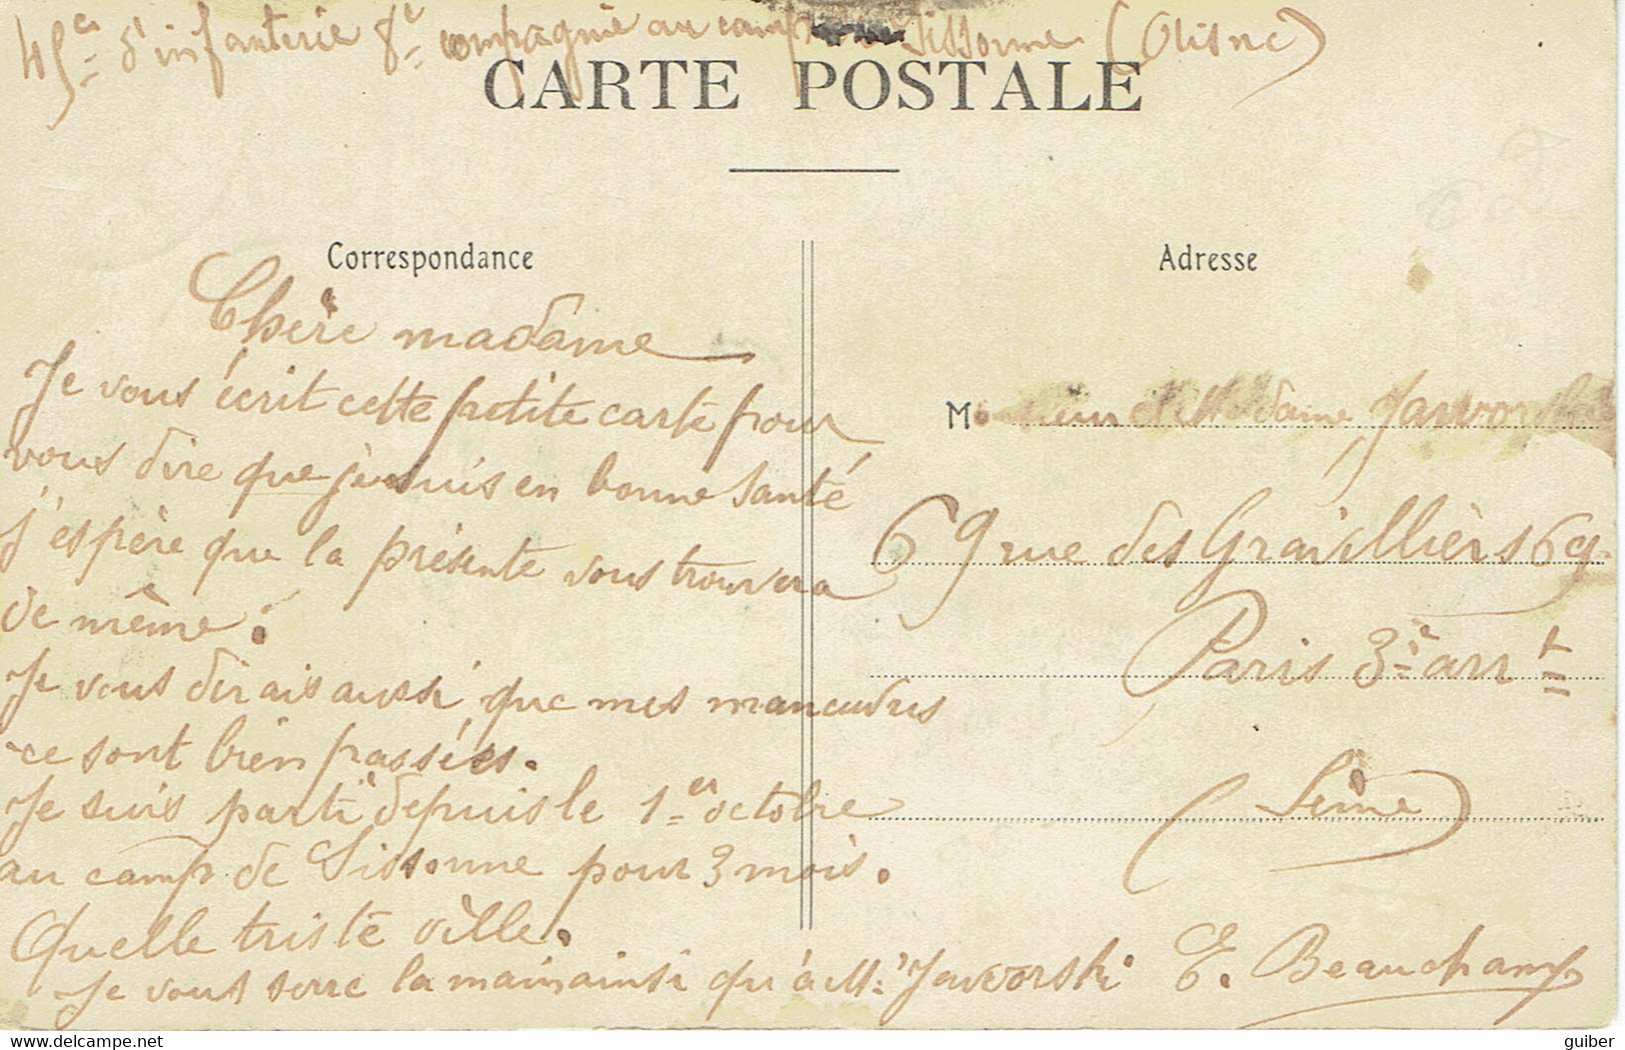 45es d'infanterie 8e compagnie au camp Sissonne (Aisne)
CARTE POSTALE
Correspondance
Adresse
Chère madame
Je vous écrit cette petite carte pour
vous dire que je suis en bonne santé
j'espère que la présente vous trouvera
de même.
Je vous dirais aussi que mes maneuvres
ce sont bien passées.
Je suis parti depuis le 1er octobre
au camp de Sissonne pour 3 mois.
Quelle triste ville.
Je vous serre la main ainsi qu'à Mr Javvorski E. Beauchamp
Monsieur et Madame Javvorski
69 rue des Gravilliers 69
Paris 3è arrt
(Seine)
delcampe.net
guiber